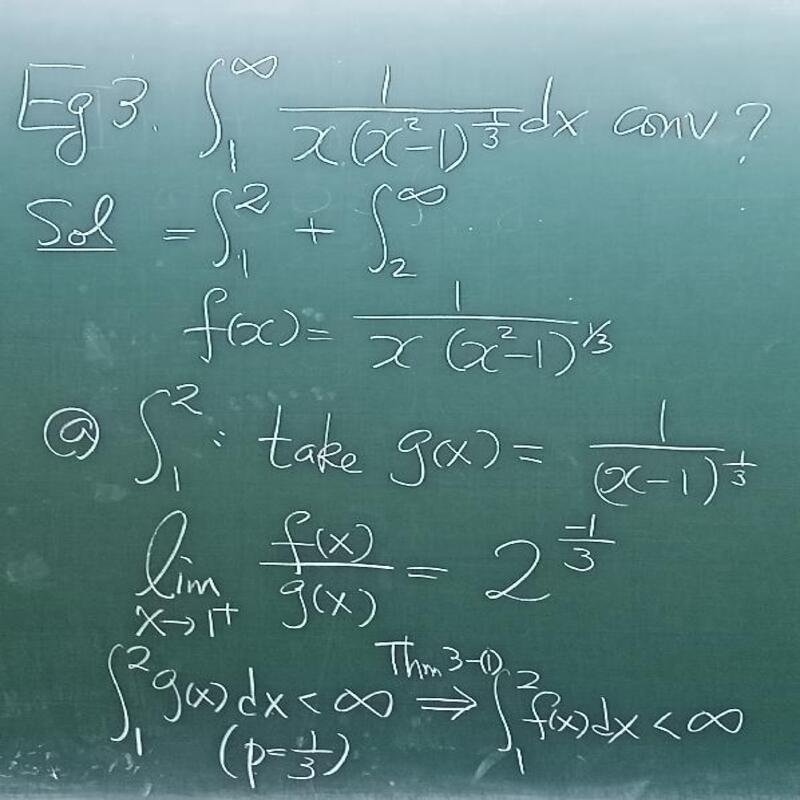 Eg 3. ∫₁^∞ 1/(x(x²-1)^(1/3)) dx conv?
Sol = ∫₁² + ∫₂^∞
f(x) = 1/(x(x²-1)^(1/3))
ⓐ ∫₁² : take g(x) = 1/(x-1)^(1/3)
lim_(x→1⁺) f(x)/g(x) = 2^(-1/3)
∫₁² g(x) dx < ∞ ⇒ (Thm 3-(1)) ∫₁² f(x) dx < ∞
(p=1/3)